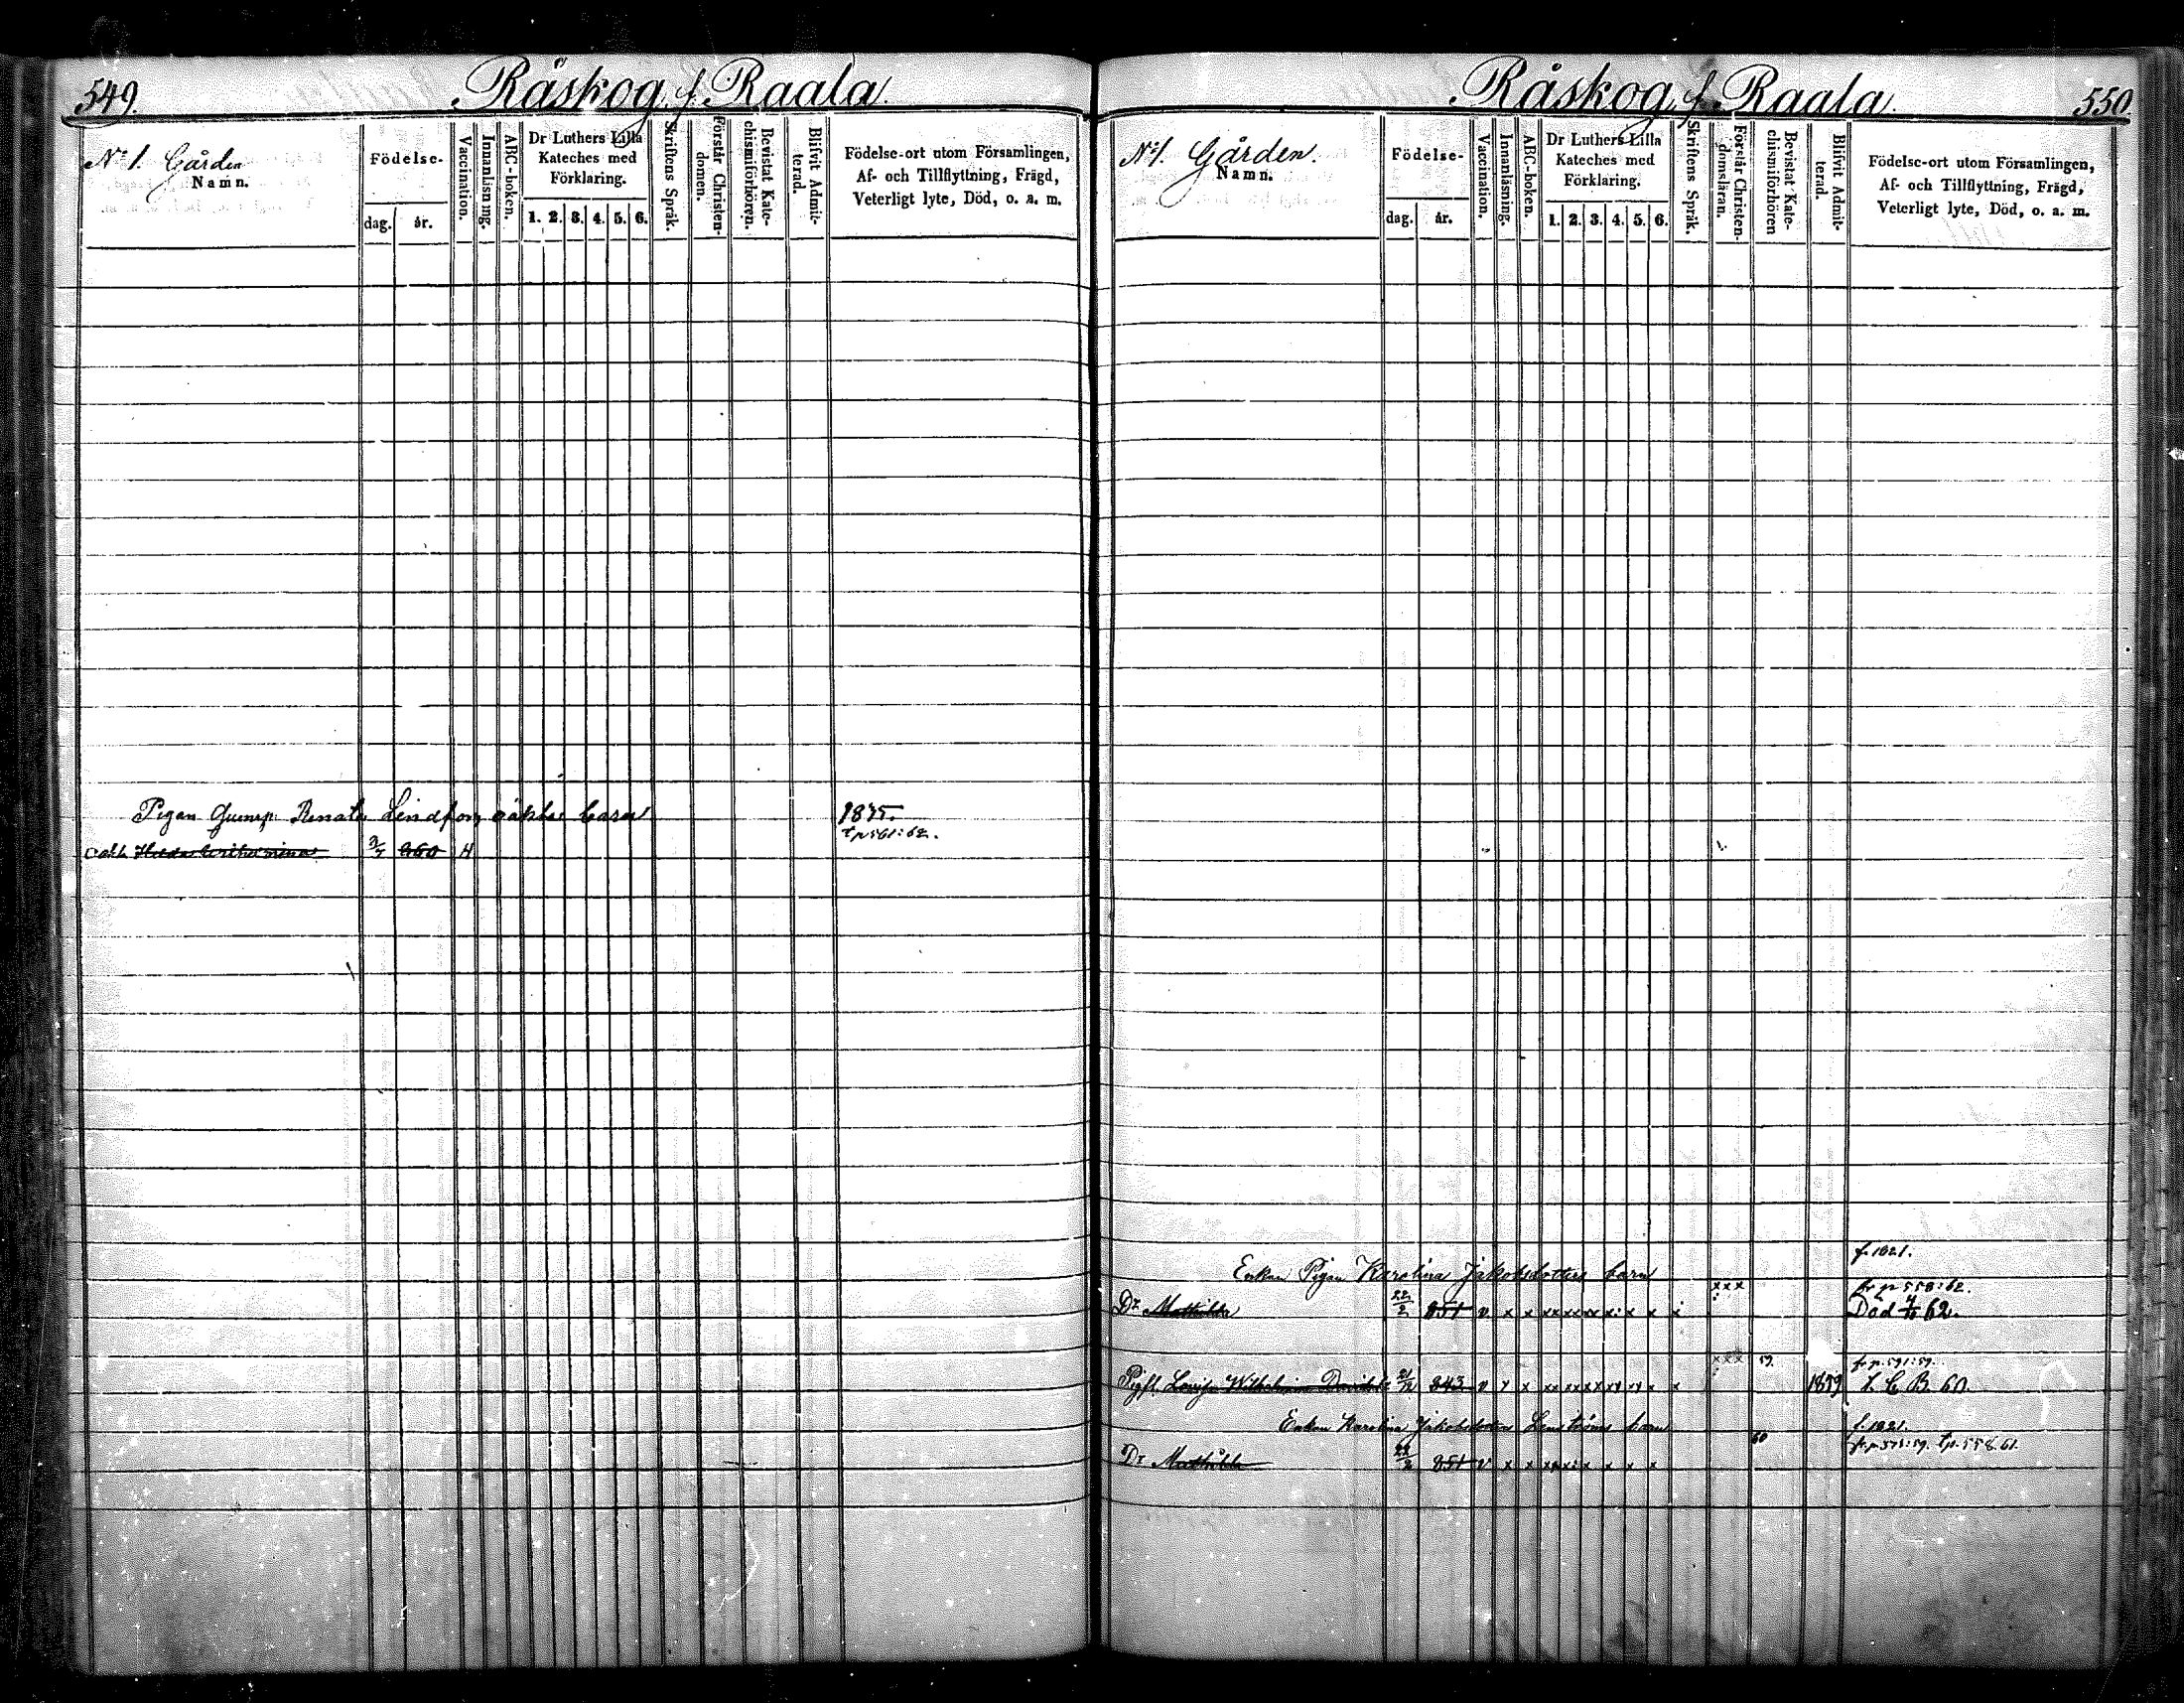 549. Råskog f. Raala.
No 1. Gården
Namn.
Födelse-
dag. år.
Vaccination.
Innanläsning.
ABC-boken.
Dr Luthers Lilla
Kateches med
Förklaring.
1. 2. 3. 4. 5. 6.
Skriftens Språk.
Förstår Christen-
domen.
Bevistat Kate-
chismiförhören.
Blifvit Admit-
terad.
Födelse-ort utom Församlingen,
Af- och Tillflyttning, Frägd,
Veterligt lyte, Död, o. a. m.
Pigan Renata Lindfors oäkta barn 1835.
t. p 561: 62.
860
Råskog f. Raala. 550.
No 1. Gården.
Namn.
Födelse-
dag. år.
Vaccination.
Innanläsning.
ABC-boken.
Dr Luthers Lilla
Kateches med
Förklaring.
1. 2. 3. 4. 5. 6.
Skriftens Språk.
Förstår Christen-
domsläran.
Bevistat Kate-
chismiförhören
Blifvit Admit-
terad.
Födelse-ort utom Församlingen,
Af- och Tillflyttning, Frägd,
Veterligt lyte, Död, o. a. m.
f. 1821.
Enkan Pigan Karolina Jakobsdotters barn
xxx fr p 558: 62.
Dr Mathilda 22/2 851 v x x xx xx xx x: x x x
xxx 59. fr. p. 591: 59.
Lovisa Wilhelmina 843 v x x xx xx xx xx x x 1859 B. 60.
Enkan Karolina Jakobsdotter barn f. 1821.
60
Dr Mathilda 22/2 851 v x x x x x x